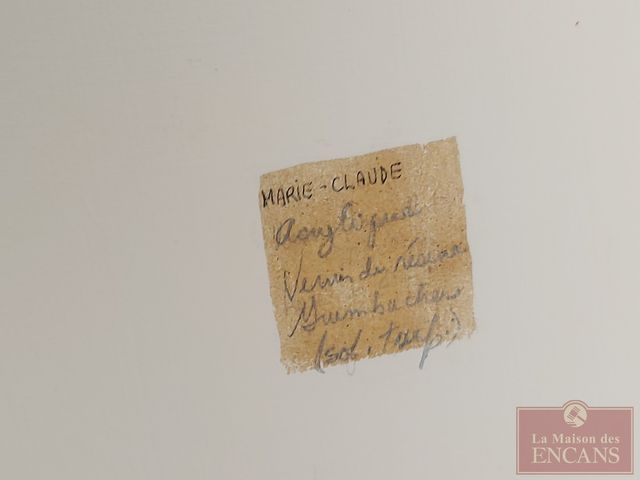 MARIE-CLAUDE
Vernis de résine
Grumbacher
(sol. turp.)
La Maison des
ENCANS